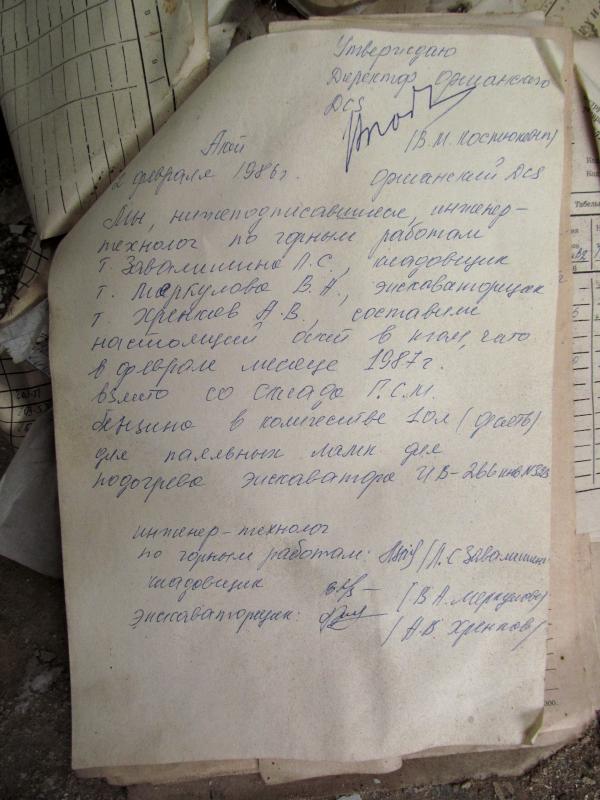 Утверждаю
Директор Оршанского
ДСЗ
(В.М. Костюкевич)
Акт
2 февраля 1986г. Оршанский ДСЗ
Мы, нижеподписавшиеся, инженер-
технолог по горным работам
т. Завалишина Л.С., кладовщик
т. Меркулова В.А., экскаваторщик
т. Хренков А.В., составили
настоящий акт в том, что
в феврале месяце 1987г.
взято со склада Г.С.М.
бензина в количестве 10л (десять)
для паяльных ламп для
подогрева экскаватора
инженер-технолог
по горным работам: /Л.С Завалишина
кладовщик (В.А. Меркулова)
экскаваторщик: (А.В. Хренков)
Табель